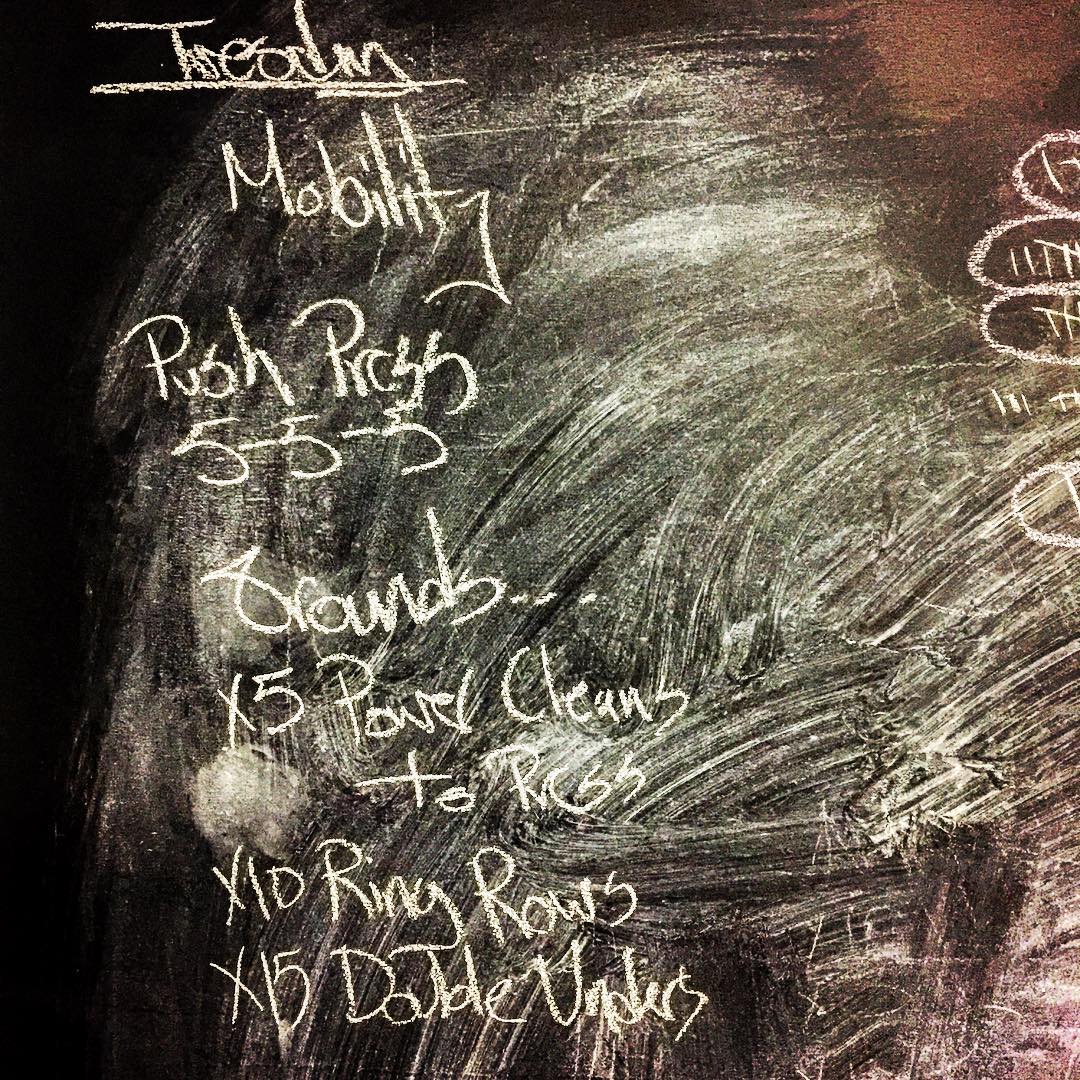 Tuesday
Mobility
Push Press
5-5-5
rounds....
X5 Power Cleans
to Press
X10 Ring Rows
X15 Double Unders